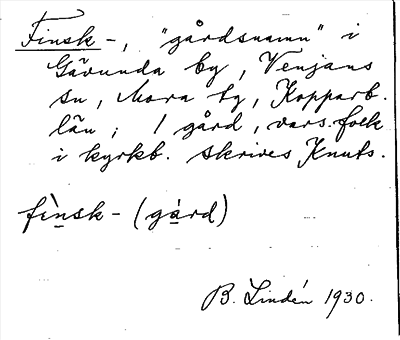 Finsk-, "gårdsnamn" i
Gävunda by, Venjans
sn, Mora tg, Kopparb.
län; 1 gård, vars folk
i kyrkb. skrives Knuts.
fìnsk- (gård)
B. Lindén 1930.